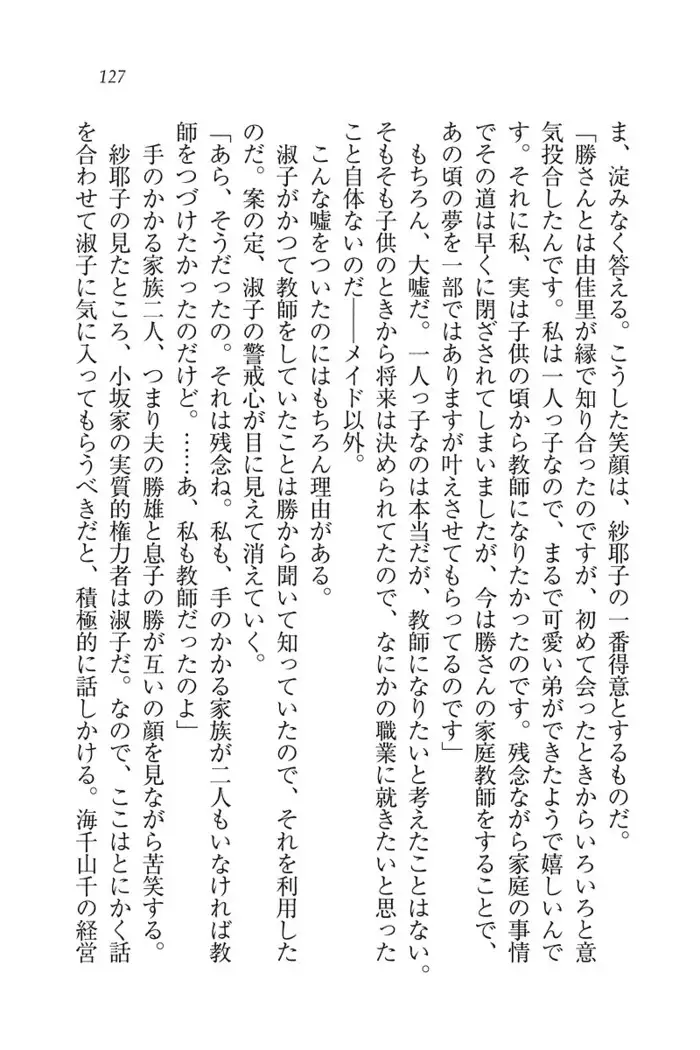 127
ま、淀みなく答える。こうした笑顔は、紗耶子の一番得意とするものだ。
「勝さんとは由佳里が縁で知り合ったのですが、初めて会ったときからいろいろと意
気投合したんです。私は一人っ子なので、まるで可愛い弟ができたようで嬉しいんで
す。それに私、実は子供の頃から教師になりたかったのです。残念ながら家庭の事情
でその道は早くに閉ざされてしまいましたが、今は勝さんの家庭教師をすることで、
あの頃の夢を一部ではありますが叶えさせてもらってるのです」
もちろん、大嘘だ。一人っ子なのは本当だが、教師になりたいと考えたことはない。
そもそも子供のときから将来は決められてたので、なにかの職業に就きたいと思った
こと自体ないのだ――メイド以外。
こんな嘘をついたのにはもちろん理由がある。
淑子がかつて教師をしていたことは勝から聞いて知っていたので、それを利用した
のだ。案の定、淑子の警戒心が目に見えて消えていく。
「あら、そうだったの。それは残念ね。私も、手のかかる家族が二人もいなければ教
師をつづけたかったのだけど。……あ、私も教師だったのよ」
手のかかる家族二人、つまり夫の勝雄と息子の勝が互いの顔を見ながら苦笑する。
紗耶子の見たところ、小坂家の実質的権力者は淑子だ。なので、ここはとにかく話
を合わせて淑子に気に入ってもらうべきだと、積極的に話しかける。海千山千の経営